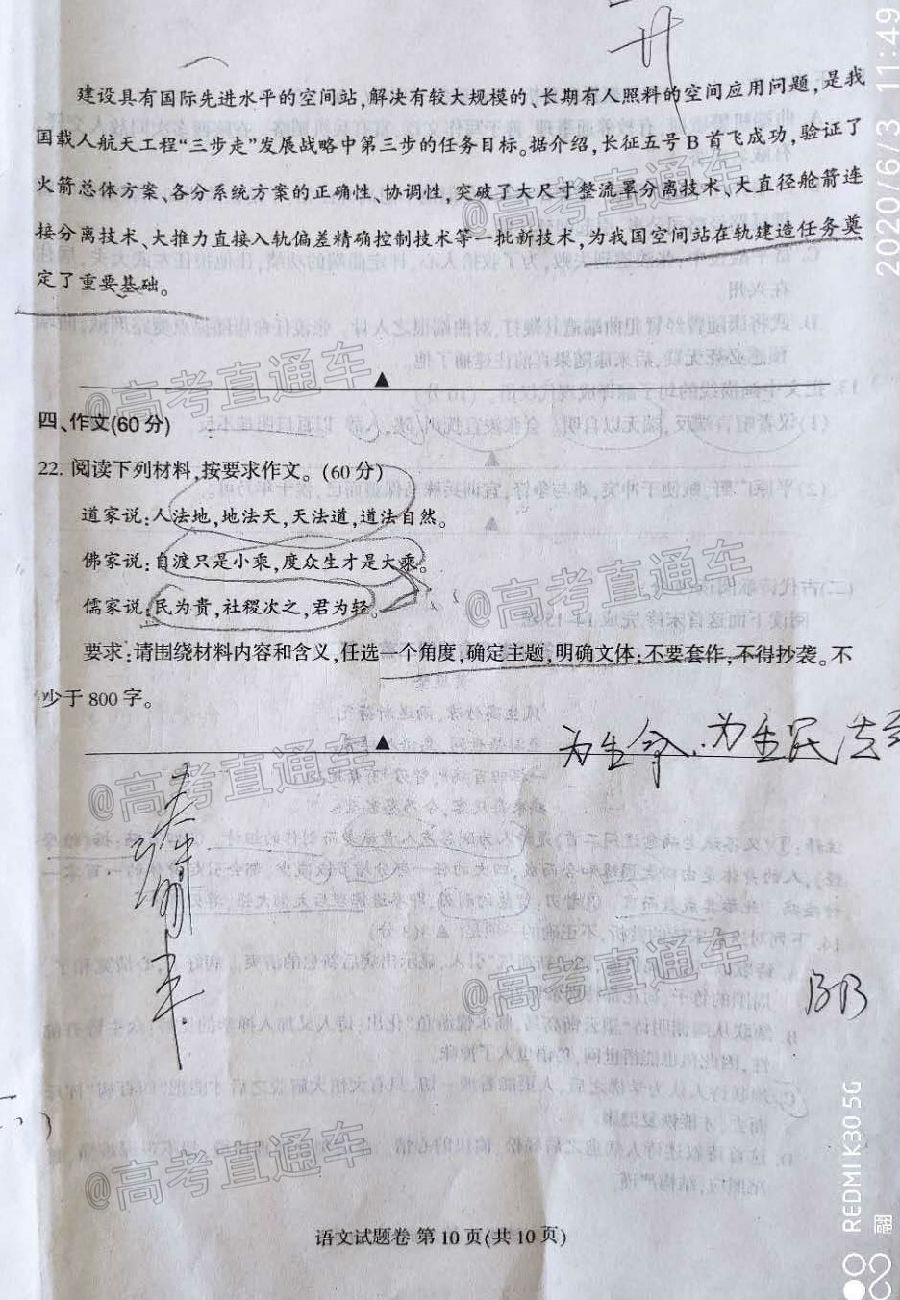 建设具有国际先进水平的空间站,解决有较大规模的、长期有人照料的空间应用问题,是我
国载人航天工程“三步走”发展战略中第三步的任务目标。据介绍,长征五号B首飞成功,验证了
火箭总体方案、各分系统方案的正确性、协调性,突破了大尺寸整流罩分离技术、大直径舱箭连
接分离技术、大推力直接入轨偏差精确控制技术等一批新技术,为我国空间站在轨建造任务奠
定了重要基础。
@高考直通车
@高考直通车
▲
四、作文(60分)
22. 阅读下列材料,按要求作文。(60分)
道家说:人法地,地法天,天法道,道法自然。
佛家说:自渡只是小乘,度众生才是大乘。
@高考直通车
儒家说:民为贵,社稷次之,君为轻。
要求:请围绕材料内容和含义,任选一个角度,确定主题,明确文体;不要套作,不得抄袭。不
少于800字。
▲
为生命,为生民
@高考直通车
@高考直通车
BB
@高考直通车
语文试题卷 第10页(共10页)
2020/6/3 11:49
REDMI K30 5G